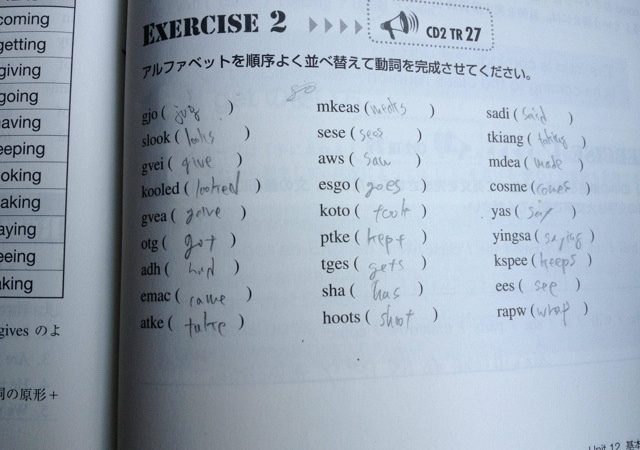 coming
getting
giving
going
having
keeping
looking
making
saying
seeing
taking
gives のよ
詞の原形+
EXERCISE 2
CD2 TR 27
アルファベットを順序よく並べ替えて動詞を完成させてください。
go
gjo ( jog )
slook ( looks )
gvei ( give )
kooled ( looked )
gvea ( gave )
otg ( got )
adh ( had )
emac ( came )
atke ( take )
mkeas ( makes )
sese ( sees )
aws ( saw )
esgo ( goes )
koto ( took )
ptke ( kept )
tges ( gets )
sha ( has )
hoots ( shoot )
sadi ( said )
tkiang ( taking )
mdea ( made )
cosme ( comes )
yas ( say )
yingsa ( saying )
kspee ( keeps )
ees ( see )
rapw ( wrap )
Unit 12 基本